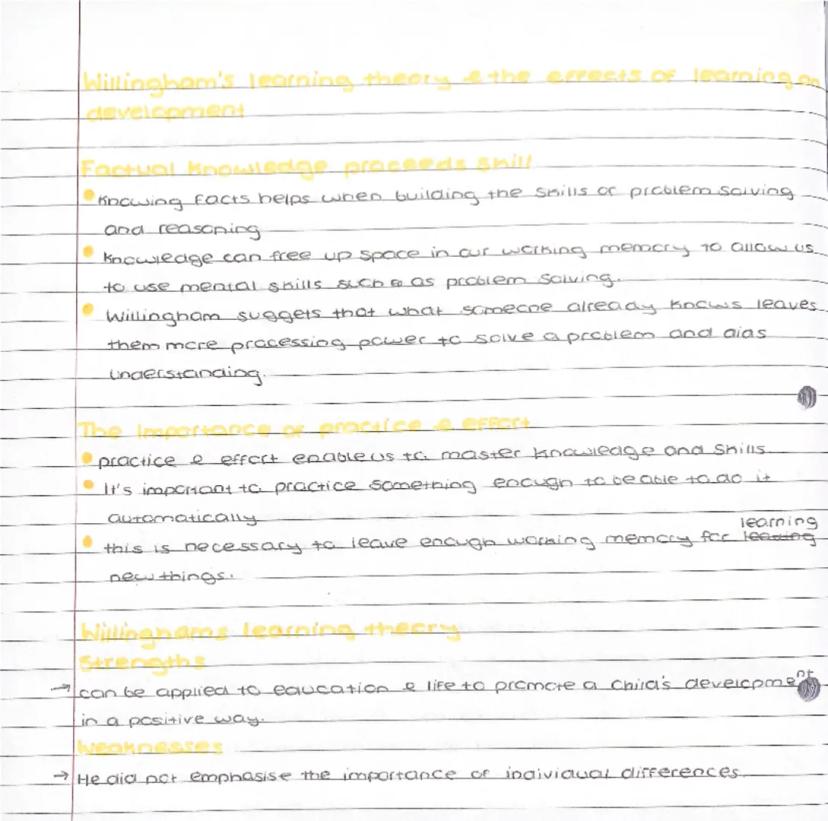 Willingham's learning theory & the effects of learning on
development
Factual knowledge proceeds skill
Knowing facts helps when building the skills of problem solving
and reasoning
Knowledge can free up space in our working memory to allow us
to use mental skills such as as problem solving.
Willingham suggests that what someone already knows leaves
them more processing power to solve a problem and aids
understanding.
The importance of practice & effort
practice & effort enable us to master knowledge and skills
It's important to practice something enough to be able to do it
automatically
learning
this is necessary to leave enough working memory for
new things.
Willinghams learning theory
Strengths
→ can be applied to education & life to promote a child's development
in a positive way.
Weaknesses
→ He did not emphasise the importance of individual differences